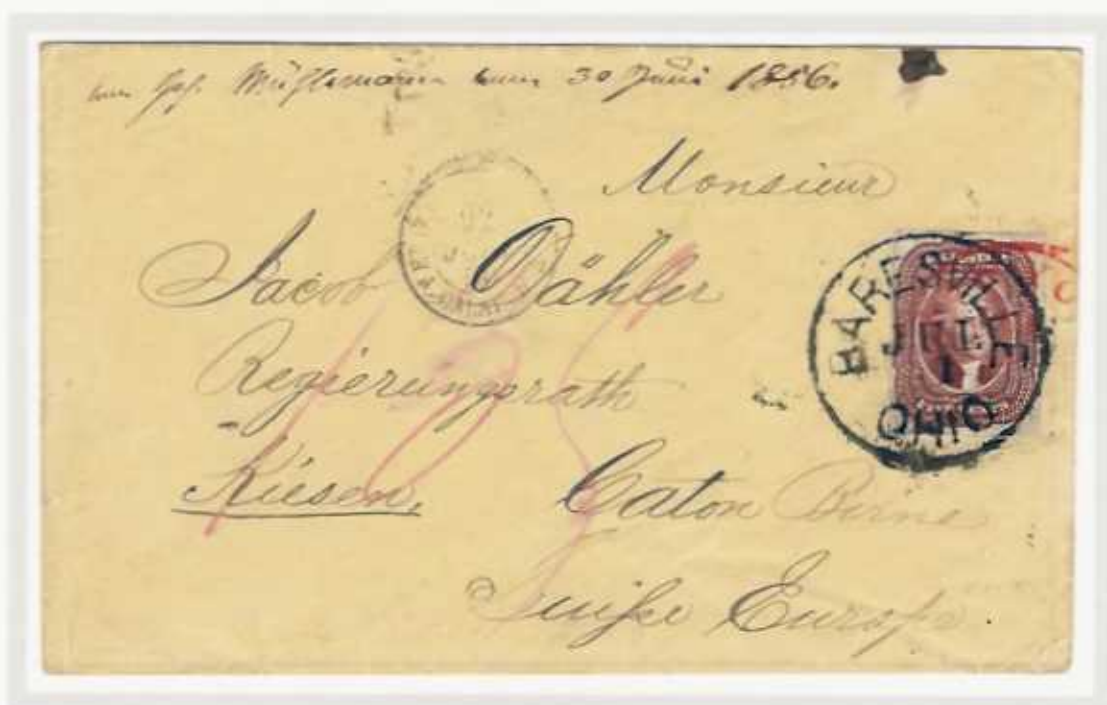 30 Juni 1856.
Monsieur
Jacob Dähler
Regierungsrath
Kiesen,
Caton Berne
Suiſse Europe
BARESVILLE
JUL
1
OHIO